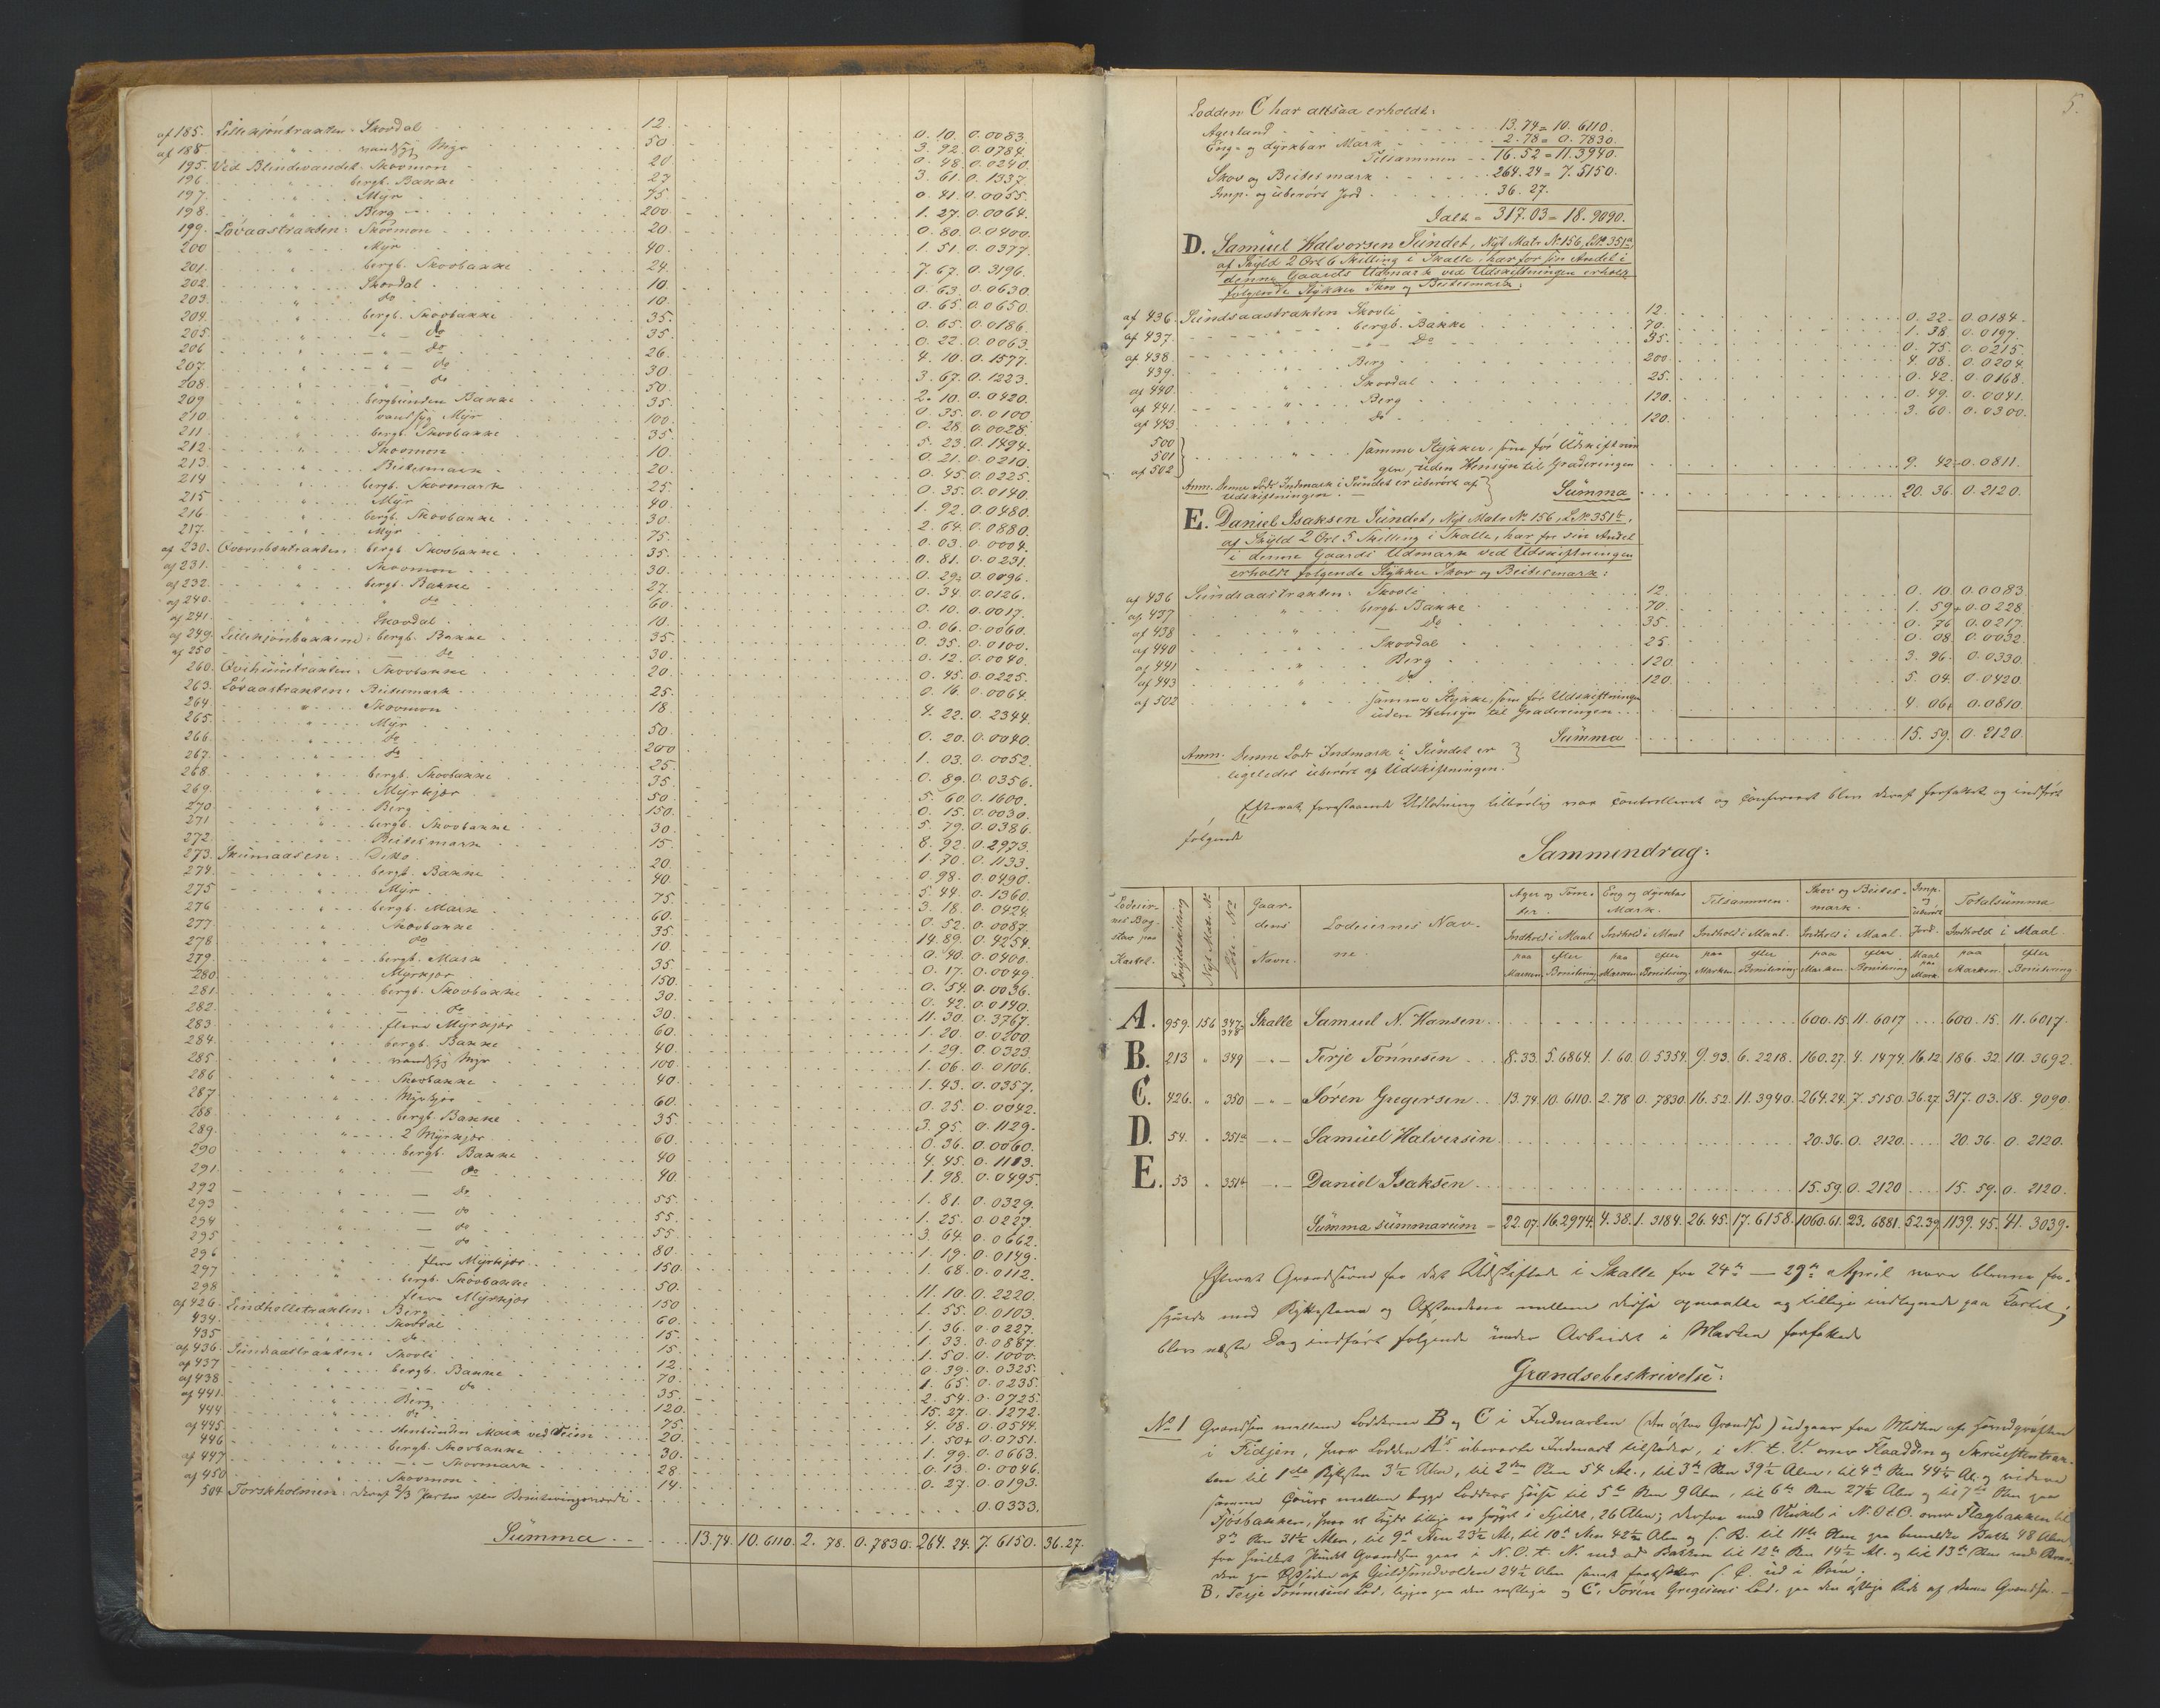 af 185. Lillekjöntrakten: Skovdal 12. 0. 10. 0. 0083.
af 188. " vandsyg Myr 50. 3. 92. 0. 0784.
195. Ved Blindevandet. Skovmon 20 0. 48. 0. 0240.
196. " bergb. Bakke 27 3. 61. 0. 1337.
197. " Myr 75 0. 41. 0. 0055.
198. " Berg 200. 1. 27. 0. 0064.
199. Lövaastrakten: Skovmon 20. 0. 80. 0. 0400.
200 " Myr 40. 1. 51. 0. 0377.
201. " bergb. Skovbakke 24. 7. 67. 0. 3196.
202. " Skovdal 10. 0. 63. 0. 0630.
203. " do 10. 0. 65. 0. 0650.
204. " bergb. Skovbakke 35. 0. 65. 0. 0186.
205. " do 35 0. 22. 0. 0063.
206 " do 26. 4. 10. 0. 1577.
207. " do 30. 3. 67. 0. 1223.
208. " do 50. 2. 10. 0. 0420.
209 " bergbunden Bakke 35. 0. 35. 0. 0100
210. " vandsyg Myr 100. 0. 28. 0. 0028.
211. " bergb. Skovbakke 35. 5. 23. 0. 1494.
212. " Skovmon 10. 0. 21. 0. 0210.
213. " Beitesmark 20. 0. 45. 0. 0225.
214 " bergb. Skovmark 25. 0. 35. 0. 0140.
215 " Myr 40. 1. 92. 0. 0480.
216 " bergb. Skovbakke 30. 2. 64. 0. 0880.
217. " Myr 75. 0. 03. 0. 0004.
af 230. Qvernbæktrakten: bergb. Skovbakke 35. 0. 81. 0. 0231.
af 231. " Skovmon 30. 0. 29. 0. 0096.
af 232. " bergb. Bakke 27. 0. 34. 0. 0126.
af 240. " do 60. 0. 10. 0. 0017.
af 241. " Skovdal 10. 0. 06. 0. 0060.
af 249. Lillekjönbakkene: bergb. Bakke 35. 0. 35. 0. 0100.
af 250 " do 30. 0. 12. 0. 0040.
260. Qvihuntrakten: Skovbakke 20. 0. 45. 0. 0225.
263. Lövaastrakten: Beitesmark 25. 0. 16. 0. 0064.
264. " Skovmon 18. 4. 22. 0. 2344.
265. " Myr 50. 0. 20. 0. 0040.
266. " do 200 1. 03. 0. 0052.
267. " do 25. 0. 89. 0. 0356.
268. " bergb. Skovbakke 35. 5. 60. 0. 1600.
269. " Myrkjær 50. 0. 15. 0. 0030.
270 " Berg 150. 5. 79. 0. 0386.
271 " bergb. Skovbakke 30. 8. 92. 0. 2973.
272. " Beitesmark 15. 1. 70. 0. 1133.
273. Skumaasen: Ditto 20. 0. 98. 0. 0490.
274. " bergb. Bakke 40. 5. 44. 0. 1360.
275 " Myr 75. 3. 18. 0. 0424.
276 " bergb. Mark 60. 0. 52. 0. 0087.
277 " Skovbakke 35 14. 89. 0. 4254.
278 " do 10. 0. 40. 0. 0400.
279. " bergb. Mark 35. 0. 17. 0. 0049.
280 " Myrkjær 150. 0. 54. 0. 0036.
281. " bergb. Skovbakke 30. 0. 42. 0. 0140.
282. " do 30. 11. 30. 0. 3767.
283. " flere Myrkjær 60. 1. 20. 0. 0200.
284. " bergb. Bakke 40. 1. 29. 0. 0323.
285 " vandsyg Myr 100. 1. 06. 0. 0106.
286 " Skovbakke 40 1. 43. 0. 0357.
287 " Myrkjær 60. 0. 25. 0. 0042.
288. " bergb. Bakke 35. 3. 95. 0. 1129.
289. " 2 Myrkjær 60. 0. 36. 0. 0060.
290 " bergb. Bakke 40 4. 45. 0. 1113.
291. " do 40. 1. 98. 0. 0495.
292 " do 55. 1. 81. 0. 0329.
293 " do 55. 1. 25. 0. 0227.
294 " do 55. 3. 64. 0. 0662.
295 " do 80. 1. 19. 0. 0149.
296 " flere Myrkjær 150. 1. 68. 0. 0112.
297 " bergb. Skovbakke 50. 11. 10. 0. 2220.
298 " flere Myrkjær 150 1. 55. 0. 0103.
af 426. Lindholletrakten: Berg 60. 1. 36. 0. 0227.
434. " Skovdal 15. 1. 33. 0. 0887.
435 " do 15. 1. 50. 0. 1000.
af 436. Sundsaastrakten: Skovli 12. 0. 39. 0. 0325.
af 437 " bergb. Bakke 70. 1. 65. 0. 0235.
af 438 " do 35. 2. 54. 0. 0725.
af 441. " Berg 120. 15. 27. 0. 1272.
444 " do 75. 4. 08. 0. 0544.
af 445. " stenbunden Mark ved Veien 20. 1. 50+ 0. 0751.
446 " bergb. Skovbakke 30. 1. 99. 0. 0663.
af 447 " Skovmark 28. 0. 13. 0. 0046.
af 450 " Skovmon 14. 0. 27. 0. 0193.
504 Torskholmen: deraf 2/3 Parter efter Boniteringsværdi 0. 0333.
Summa 13.74. 10. 6110. 2. 78. 0. 7830. 264. 24. 7. 6150. 36. 27.
5.
Lodden C har altsaa erholdt:
Agerland 13.74 = 10. 6110.
Eng- og dyrkbar Mark 2.78 = 0. 7830.
Tilsammen 16.52 = 11.3940.
Skov og Beitesmark 264.24 = 7.5150.
Imp. og uberört Jord 36. 27.
Ialt = 317.03 = 18. 9090.
D. Samuel Halvorsen Sundet, Nyt Matr No 156, LNo 351a
af Skyld 2 Ort 6 Skilling i Skalle, har for sin Andel i
denne Gaards Udmark ved Udskiftningen erholdt
følgende Stykker Skov og Beitesmark:
af 436. Sundsaastrakten Skovli 12. 0. 22. 0. 0184.
af 437. " bergb. Bakke 70. 1. 38. 0. 0197.
af 438. " do 35. 0. 75. 0. 0215.
439. " Berg 200. 4. 08. 0. 0204.
af 440. " Skovdal 25. 0. 42. 0. 0168.
af 441. " Berg 120. 0. 49. 0. 0041.
af 443 " do 120. 3. 60. 0. 0300.
500
501 samme Stykker, som för Udskiftnin
af 502 gen, uden Hensyn til Graderingen 9. 42 0. 0811.
Anm. Denne Lods Indmark i Sundet er uberört af
Udskiftningen. Summa 20. 36. 0. 2120.
E. Daniel Isaksen Sundet, Nyt Matr No 156, LNo 351b,
af Skyld 2 Ort 5 Skilling i Skalle, har for sin Andel
i denne Gaards Udmark ved Udskiftningen
erholdt følgende Stykker Skov og Beitesmark:
af 436 Sundsaastrakten: Skovli 12. 0. 10. 0. 0083.
af 437 " bergb. Bakke 70. 1. 59+ 0. 0228.
af 438 " do 35. 0. 76 0. 0217.
af 440 " Skovdal 25. 0. 08 0. 0032.
af 441 " Berg 120. 3. 96. 0. 0330.
af 443 " do 120. 5. 04. 0. 0420.
af 502 " samme Stykke, som för Udskiftningen
uden Hensyn til Graderingen 4. 06+ 0. 0810.
Summa 15. 59. 0. 2120.
Anm. Denne Lods Indmark i Sundet er
ligeledes uberört af Udskiftningen.
Efterat foranstaaende Udlodning tilbörlig var controlleret og confereret blev deraf forfattet og indfört
følgende
Sammendrag:
Lodeiernes Bogstav paa Kartet. Skyldskilling Nyt Matr. No. Löbe No Gaardens Navn. Lodeiernes Navne. Ager og Tomter. Eng og dyrkbar Mark. Tilsammen. Skov og Beitesmark. Imp. og uberört Jord. Totalsumma
Indhold i Maal Indhold i Maal Indhold i Maal. Indhold i Maal. Indhold i Maal.
paa Marken. efter Bonitering paa Marken. efter Bonitering paa Marken. efter Bonitering paa Marken. efter Bonitering Maal paa Mark. paa Marken. efter Bonitering.
A. 959. 156 347. 348. Skalle Samuel N. Hansen 600. 15. 11. 6017 600. 15. 11. 6017.
B. 213 " 349 Terje Tönnesen 8.33. 5.6864. 1. 60. 0.5354. 9. 93. 6. 2218. 160.27. 4. 1474. 16.12 186. 32. 10. 3692.
C. 426. " 350 Sören Gregersen 13.74. 10. 6110. 2. 78 0. 7830. 16. 52. 11. 3940. 264.24. 7. 5150. 36.27. 317. 03. 18. 9090.
D. 54. " 351a Samuel Halversen 20.36. 0. 2120. 20. 36. 0. 2120.
E. 53 " 351b Daniel Isaksen 15.59. 0. 2120 15. 59. 0. 2120.
Summa summarum = 22.07. 16.2974. 4. 38. 1. 3184. 26. 45. 17. 6158. 1060. 61. 23. 6881. 52.39. 1139. 45. 41. 3039.
Efterat Grændserne for det Udskiftede i Skalle fra 24de — 29de April vare blevne for-
synede med Bytestene og Afstandene mellem disse opmaalte og tillige indlagt paa Kartet;
blev næste Dag indfört følgende under Arbeidet i Marken forfattede
Grændsebeskrivelse:
No 1 Grændsen mellem Lodderne B og C i Indmarken (den østre Grændse) udgaar fra Midten af
i Fidjen, hvor Lodden A's uberörte Indmark tilstöder, i N. t. V. over
ten til 1ste Bytesten 3½ Alen, til 2den Sten 54 Al., til 3die Sten 39½ Alen, til 4de Sten 44½ Al. og videre
samme Cours mellem begge Lodders Huse til 5te Sten 9 Alen, til 6te Sten 27½ Alen og til 7de Sten paa
26 Alen; derfra med Vinkel i N.O.t.O. over Flagbakken til
8de Sten 31½ Alen, til 9de Sten 23½ Al, til 10de Sten 42½ Alen og til 11te Sten paa bemeldte Bakke 48 Alen
fra hvilket Punkt Grændsen gaar i N. O. t. N. ned ad Bakken til 12te Sten 14½ Al. og til 13de Sten ved
24½ Alen
B. Terje Tönnesens Lod, ligger paa den vestlige og C. Sören Gregersens Lod, paa den östlige Side af denne Grændse.